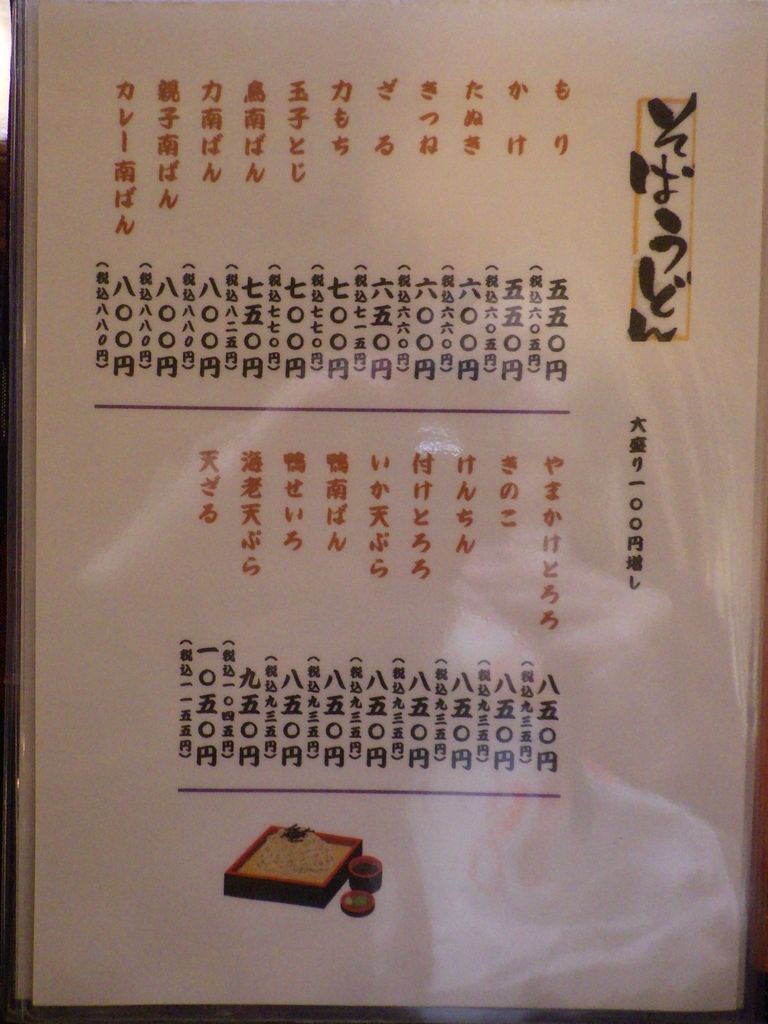 そばうどん
大盛り一〇〇円増し
もり 五五〇円
(税込六〇五円)
かけ 五五〇円
(税込六〇五円)
たぬき 六〇〇円
(税込六六〇円)
きつね 六〇〇円
(税込六六〇円)
ざる 六五〇円
(税込七一五円)
力もち 七〇〇円
(税込七七〇円)
玉子とじ 七〇〇円
(税込七七〇円)
鳥南ばん 七五〇円
(税込八二五円)
力南ばん 八〇〇円
(税込八八〇円)
親子南ばん 八〇〇円
(税込八八〇円)
カレー南ばん 八〇〇円
(税込八八〇円)
やまかけとろろ 八五〇円
(税込九三五円)
きのこ 八五〇円
(税込九三五円)
けんちん 八五〇円
(税込九三五円)
付けとろろ 八五〇円
(税込九三五円)
いか天ぷら 八五〇円
(税込九三五円)
鴨南ばん 八五〇円
(税込九三五円)
鴨せいろ 八五〇円
(税込九三五円)
海老天ぷら 九五〇円
(税込一〇四五円)
天ざる 一〇五〇円
(税込一一五五円)